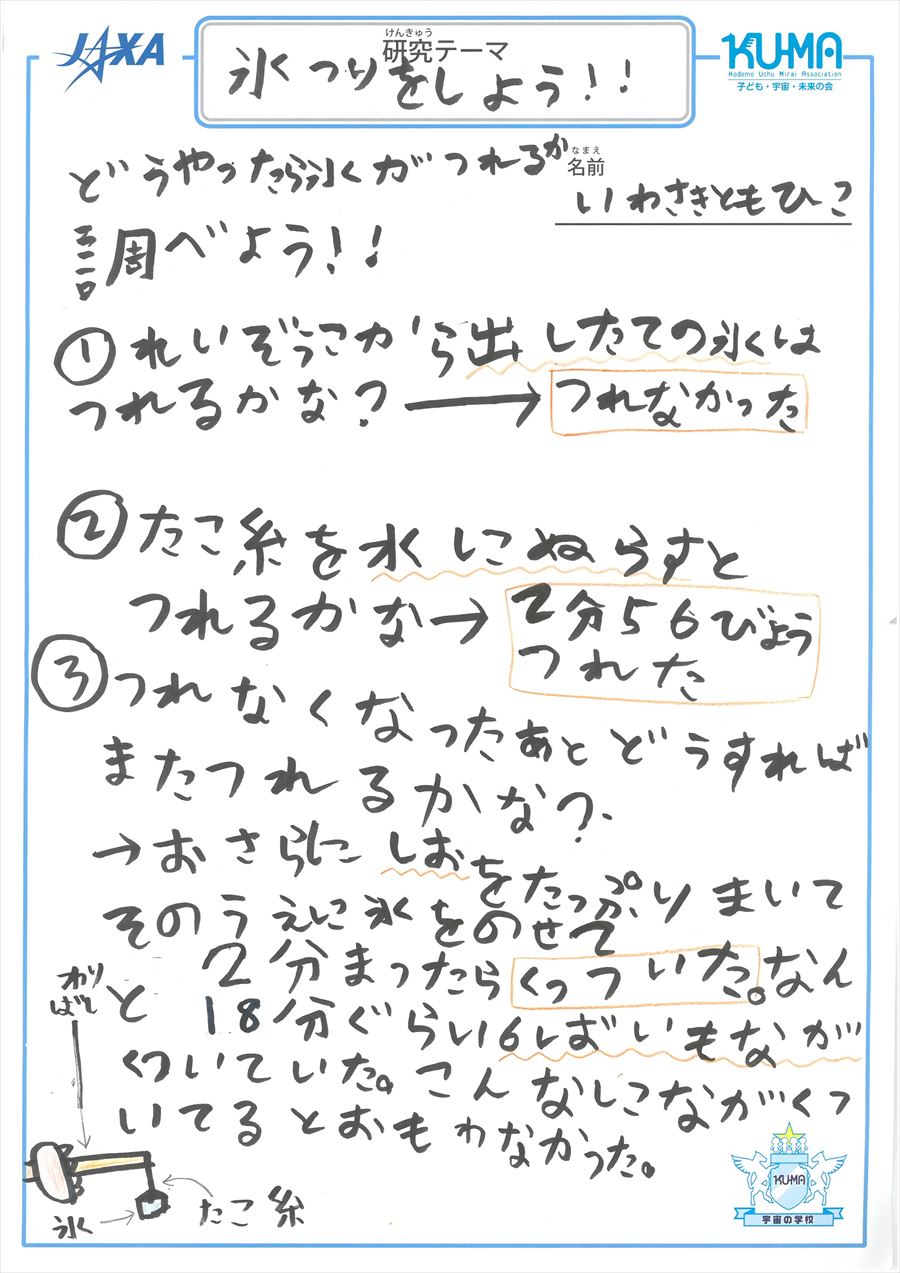 JAXA
けんきゅう
研究テーマ
氷つりをしよう!!
KU-MA
Kodomo Uchu Mirai Association
子ども・宇宙・未来の会
どうやったら氷がつれるか
調べよう!!
なまえ
名前
いわさきともひこ
①れいぞうこから出したての氷は
つれるかな?→つれなかった
②たこ糸を水にぬらすと
つれるかな→2分56びょう
つれた
③つれなくなったあとどうすれば
またつれるかな?
→おさらにしおをたっぷりまいて
そのうえに氷をのせて
2分まったらくっついた。なん
と18分ぐらい6ばいもなが
くついていた。こんなになながくつ
いてるとおもわなかった。
わり
ばし
氷
たこ糸
KU-MA
宇宙の学校